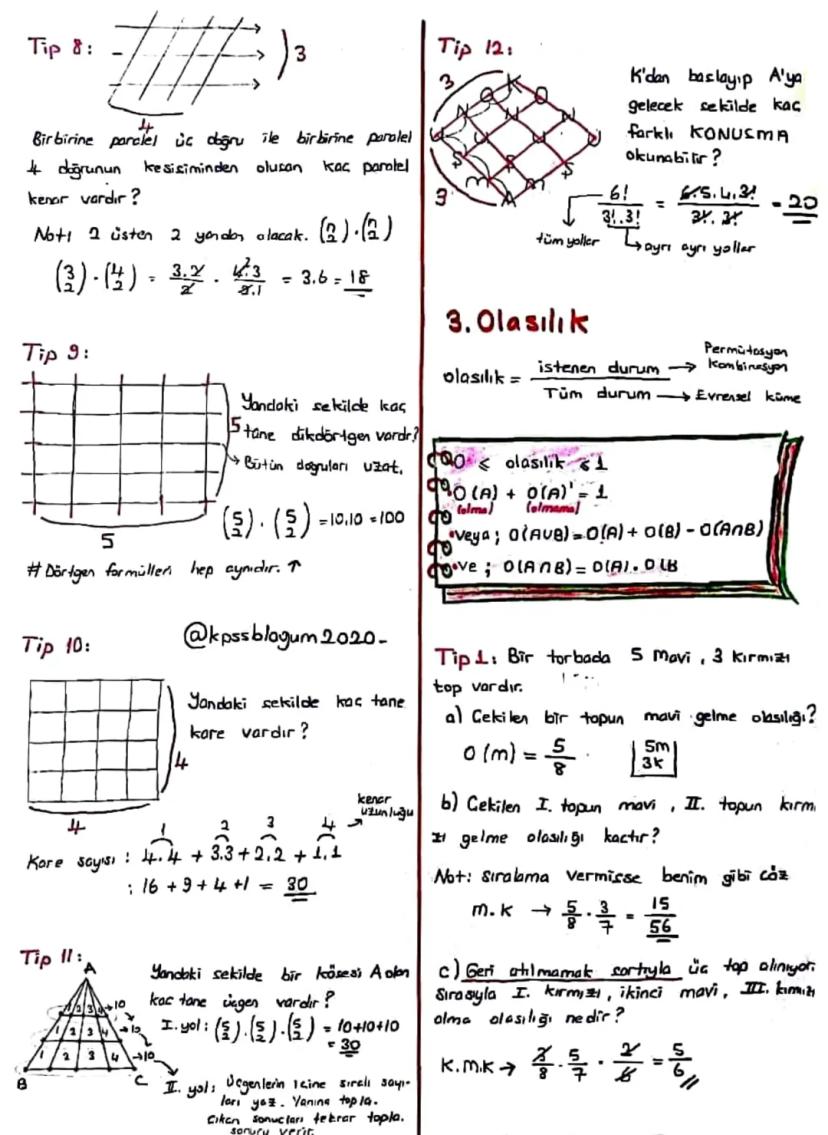 Tip 8:
3
4
Birbirine paralel üç doğru ile birbirine paralel
4 doğrunun kesisiminden olusan kac paralel
kenar vardır?
Not: 2 üsten 2 yandan alacak. (n 2) . (n 2)
(3 2) . (4 2) = 3.2/2 . 4.3/2.1 = 3.6 = 18
Tip 9:
5
Yandaki sekilde kac
tane dikdörtgen vardır?
→ Bütün doğruları uzat.
(5 2) . (5 2) = 10.10 = 100
5
# Dörtgen formülleri hep aynıdır. ↑
Tip 10:
@kpssblogum2020-
Yandaki sekilde kac tane
kare vardır?
4
4
1 2 3 4 → kenar
uzunluğu
Kare sayısı : 4.4 + 3.3 + 2.2 + 1.1
: 16 + 9 + 4 + 1 = 30
Tip 11:
A
1 2 3 4 → 10
1 2 3 4 → 10
1 2 3 4 → 10
B C
Yandaki sekilde bir kösesi A olan
kac tane ücgen vardır?
I. yol: (5 2) . (5 2) . (5 2) = 10+10+10
= 30
II. yol: Ücgenlerin icine sıralı sayı-
ları yaz. Yanına topla.
Cıkan sonucları tekrar topla.
sonucu verir.
Tip 12:
3
3
K
O O
N N N
U U U U
Ş Ş Ş
M M
A
K'dan baslayıp A'ya
gelecek sekilde kac
farklı KONUSMA
okunabilir?
6!/3!.3! = 6.5.4.3!/3!.3! = 20
tüm yollar
→ ayrı ayrı yollar
3. Olasılık
olasılık = istenen durum → Permütasyon
Kombinasyon
Tüm durum → Evrensel küme
0 ≤ olasılık ≤ 1
O(A) + O(A)' = 1
(olma) (olmama)
veya ; O(AUB) = O(A) + O(B) - O(A∩B)
ve ; O(A∩B) = O(A) . O(B
Tip 1: Bir torbada 5 mavi , 3 kırmızı
top vardır.
a) Cekilen bir topun mavi gelme olasılığı?
O (m) = 5/8
5m
3k
b) Cekilen I. topun mavi , II. topun kırm
ızı gelme olasılığı kactır?
Not: sıralama vermisse benim gibi cöz
m.k → 5/8 . 3/7 = 15/56
c) Geri atılmamak sartıyla üc top alınıyor.
Sırasıyla I. kırmızı, ikinci mavi, III. kırmızı
olma olasılığı nedir?
K.M.K → 3/8 . 5/7 . 2/6 = 5/6